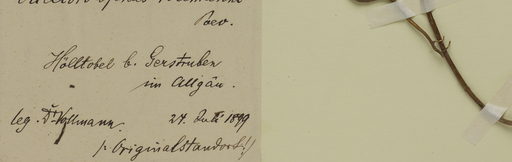 Poev.
Hölltobel b. Gerstruben
im Allgäu.
leg. Dr Vollmann. 27. Juli 1899
(: Originalstandort!)